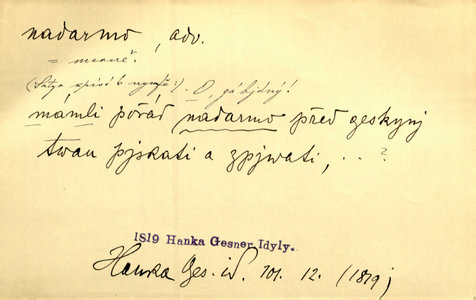 nadarmo, adv.
= marně.
(Satyr zpívá k nymfě:). O, já bjdný!
mámli pořád nadarmo před geskynj
twau pjskati a zpjwati, . . ?
1819 Hanka Gesner Idyly.
Hanka Ges. id. 101. 12. (1819)